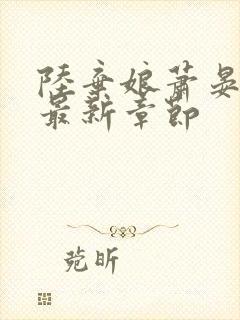 陸棄娘蕭晏
最新章節
菀昕